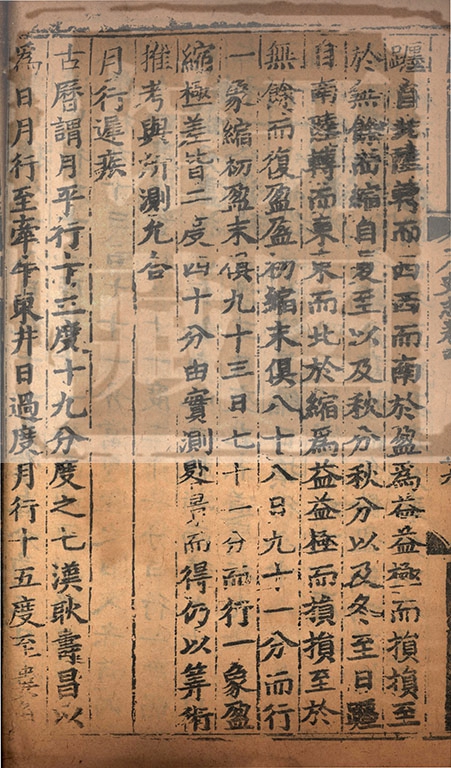 躔自北陸轉而西西而南於盈爲益益極而損損至
於無餘而縮縮自夏至以及秋分秋分以及冬至日躔
自南陸轉而東東而北於縮爲益益極而損損至於
無餘而復盈盈初縮末俱八十八日九十一分而行
一象縮初盈末俱九十三日七十一分而行一象盈
縮極差皆二度四十分由實測晷景而得仍以算術
推考與所測允合
月行遲疾
古曆謂月平行十三度十九分度之七漢耿壽昌以
爲日月行至牽牛東井日過度月行十五度至婁角